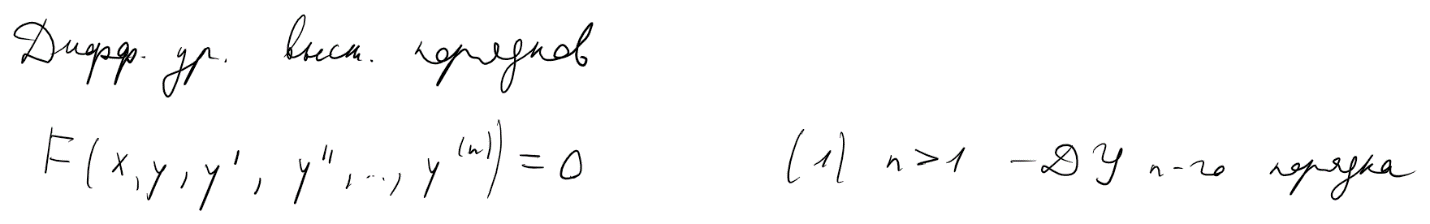 Дифф. ур. высш. порядков
F(x, y, y', y'', ..., y^(n)) = 0 (1) n>1 – ДУ n-го порядка